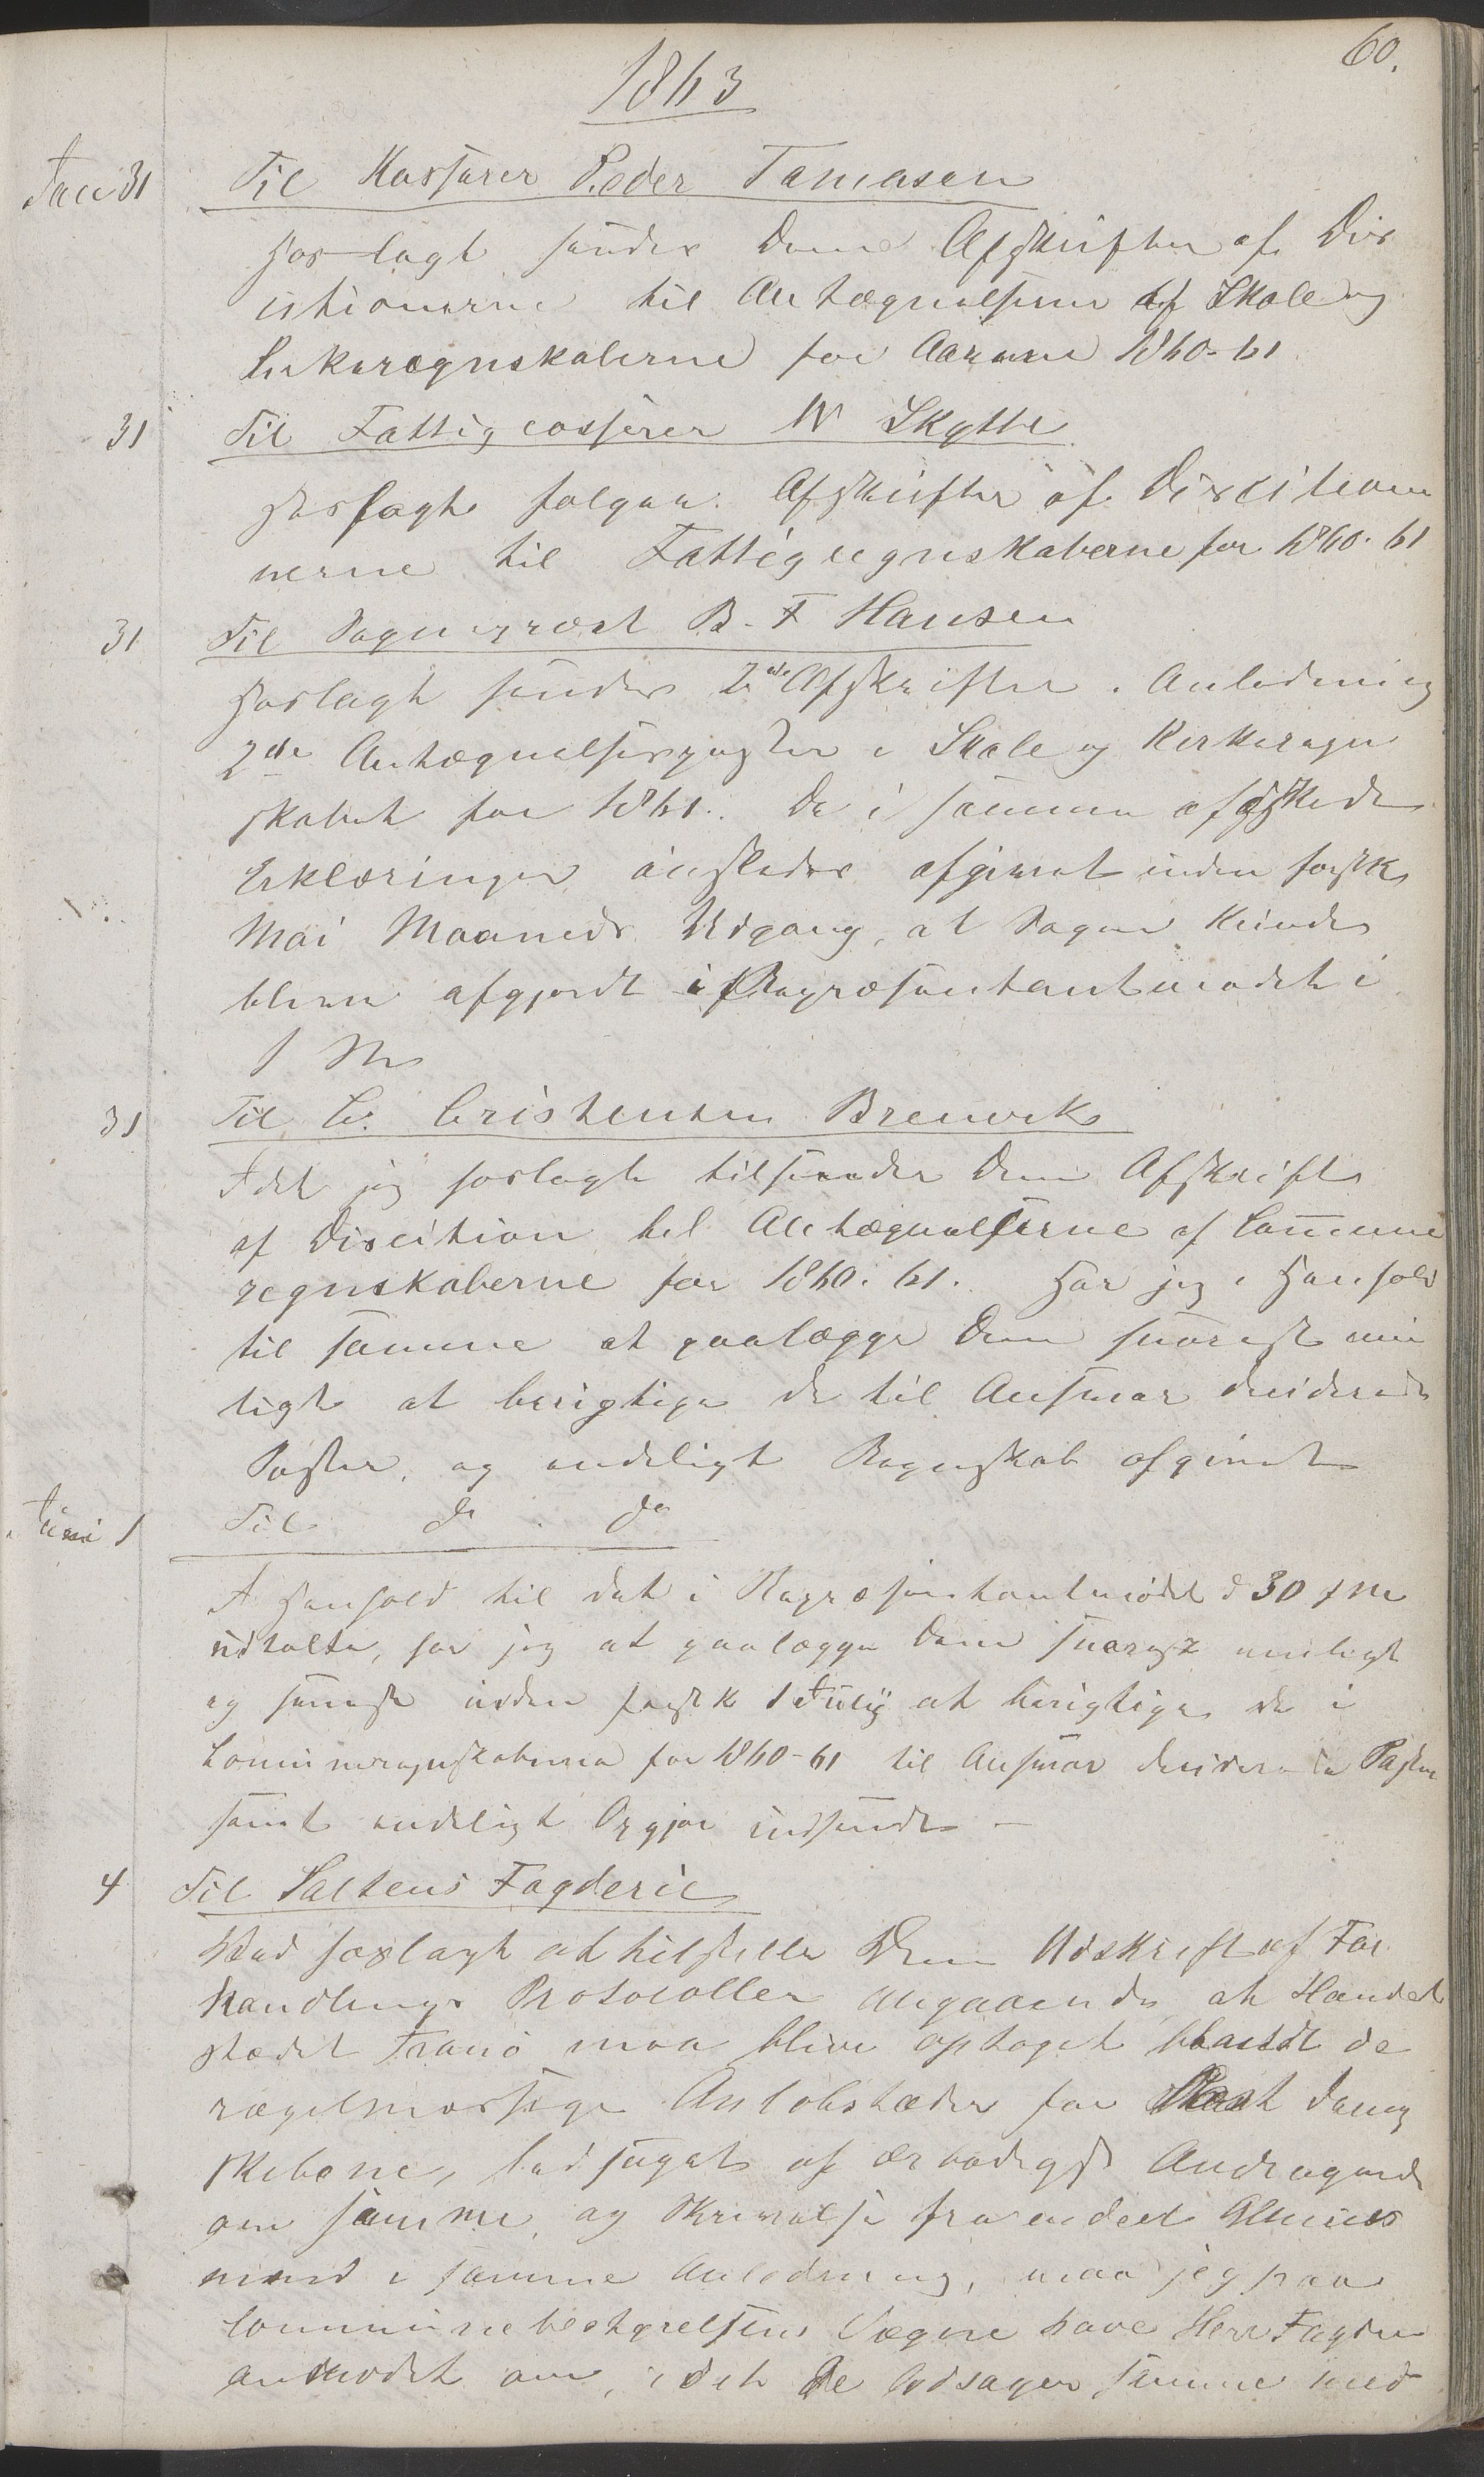 60.
1863
Jan 31 Til Kasserer Peder Tomasen
Hoslagt sendes Dem Afskrifter af Dis
citionerne til Antægnelserne af Skole og
Kirkerægnskaberne for Aarene 1860-61
31 Til Fattigcasserer N Skytte
Hoslagt følger Afskrifter af Discition
nerne til Fattigregnskaberne for 1860-61
31 Til Sogneprest B. F Hansen
Hoslagt sendes 2de Afskrifter i Anledning
2de Antægnelsesposter i Skole og Kirkeregn
skabet for 1861. De i samme afæskede
Erklæringer ønskedes afgivet inden forstk
Mai Maaneds Udgang, at Sagen kunde
blive afgjordt i Repræsentantmødet i
s M
31 Til C. Cristensen Brenvik
Idet jeg hoslagt tilsender Dem Afskrift
af Discition til Antægnelserne af Commune
regnskaberne for 1860. 61. har jeg i Henhold
til samme at paalægge Dem snarest mu
ligt at berigtige de til Ansvar deciderede
Poster, og endeligt Regnskab afgivet
Juni 1 Til do . do
I Henhold til det i Repræsentantmødet d 30 f M
udtalte, har jeg at paalægge Dem snarest muligt
og senest inden forstk 1 Julij at berigtige de i
Communeregnskaberne for 1860-61 til Ansvar deciderede Poster
samt endeligt Opgjør indsendt –
4 Til Saltens Fogderie
Ved hoslagt at tilstille Dem Udskrift af For
handlings Protocollen angaaende, at Handel
stædet Tranø maa blive optaget blandt de
regelmæssige Anløbstæder for Damp
skibene, ledsaget af ærbødigst Andragende
om samme, og Skrivelse fra endeel Almues
mænd i samme Anledning, maa jeg paa
Communebestyrelsens Vegne have Herr Fogden
anmodet om, idet De ledsager samme med